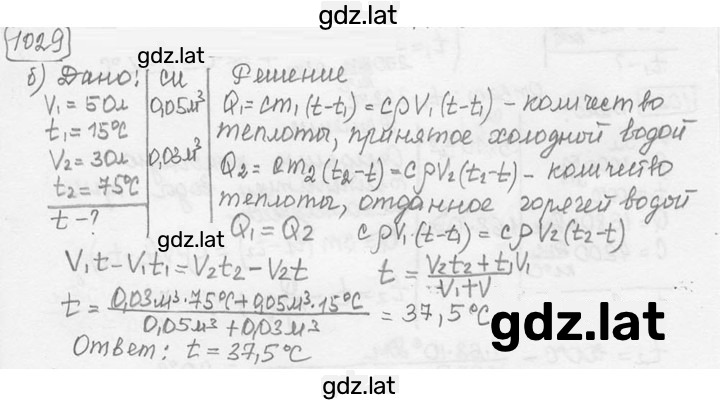 gdz.lat
1029
gdz.lat
б) Дано: СИ Решение
V₁ = 50л 0,05м³ Q₁ = cm₁(t-t₁) = cρV₁(t-t₁) - количество
t₁ = 15°C теплоты, принятое холодной водой
V₂ = 30л 0,03м³ Q₂ = cm₂(t₂-t) = cρV₂(t₂-t) - количество
t₂ = 75°C теплоты, отданное горячей водой
t - ? Q₁ = Q₂ cρV₁(t-t₁) = cρV₂(t₂-t)
gdz.lat
V₁t - V₁t₁ = V₂t₂ - V₂t t = (V₂t₂ + t₁V₁)/(V₁ + V)
t = (0,03м³·75°C + 0,05м³·15°C)/(0,05м³ + 0,03м³) = 37,5°C
gdz.lat
Ответ: t = 37,5°C
gdz.lat